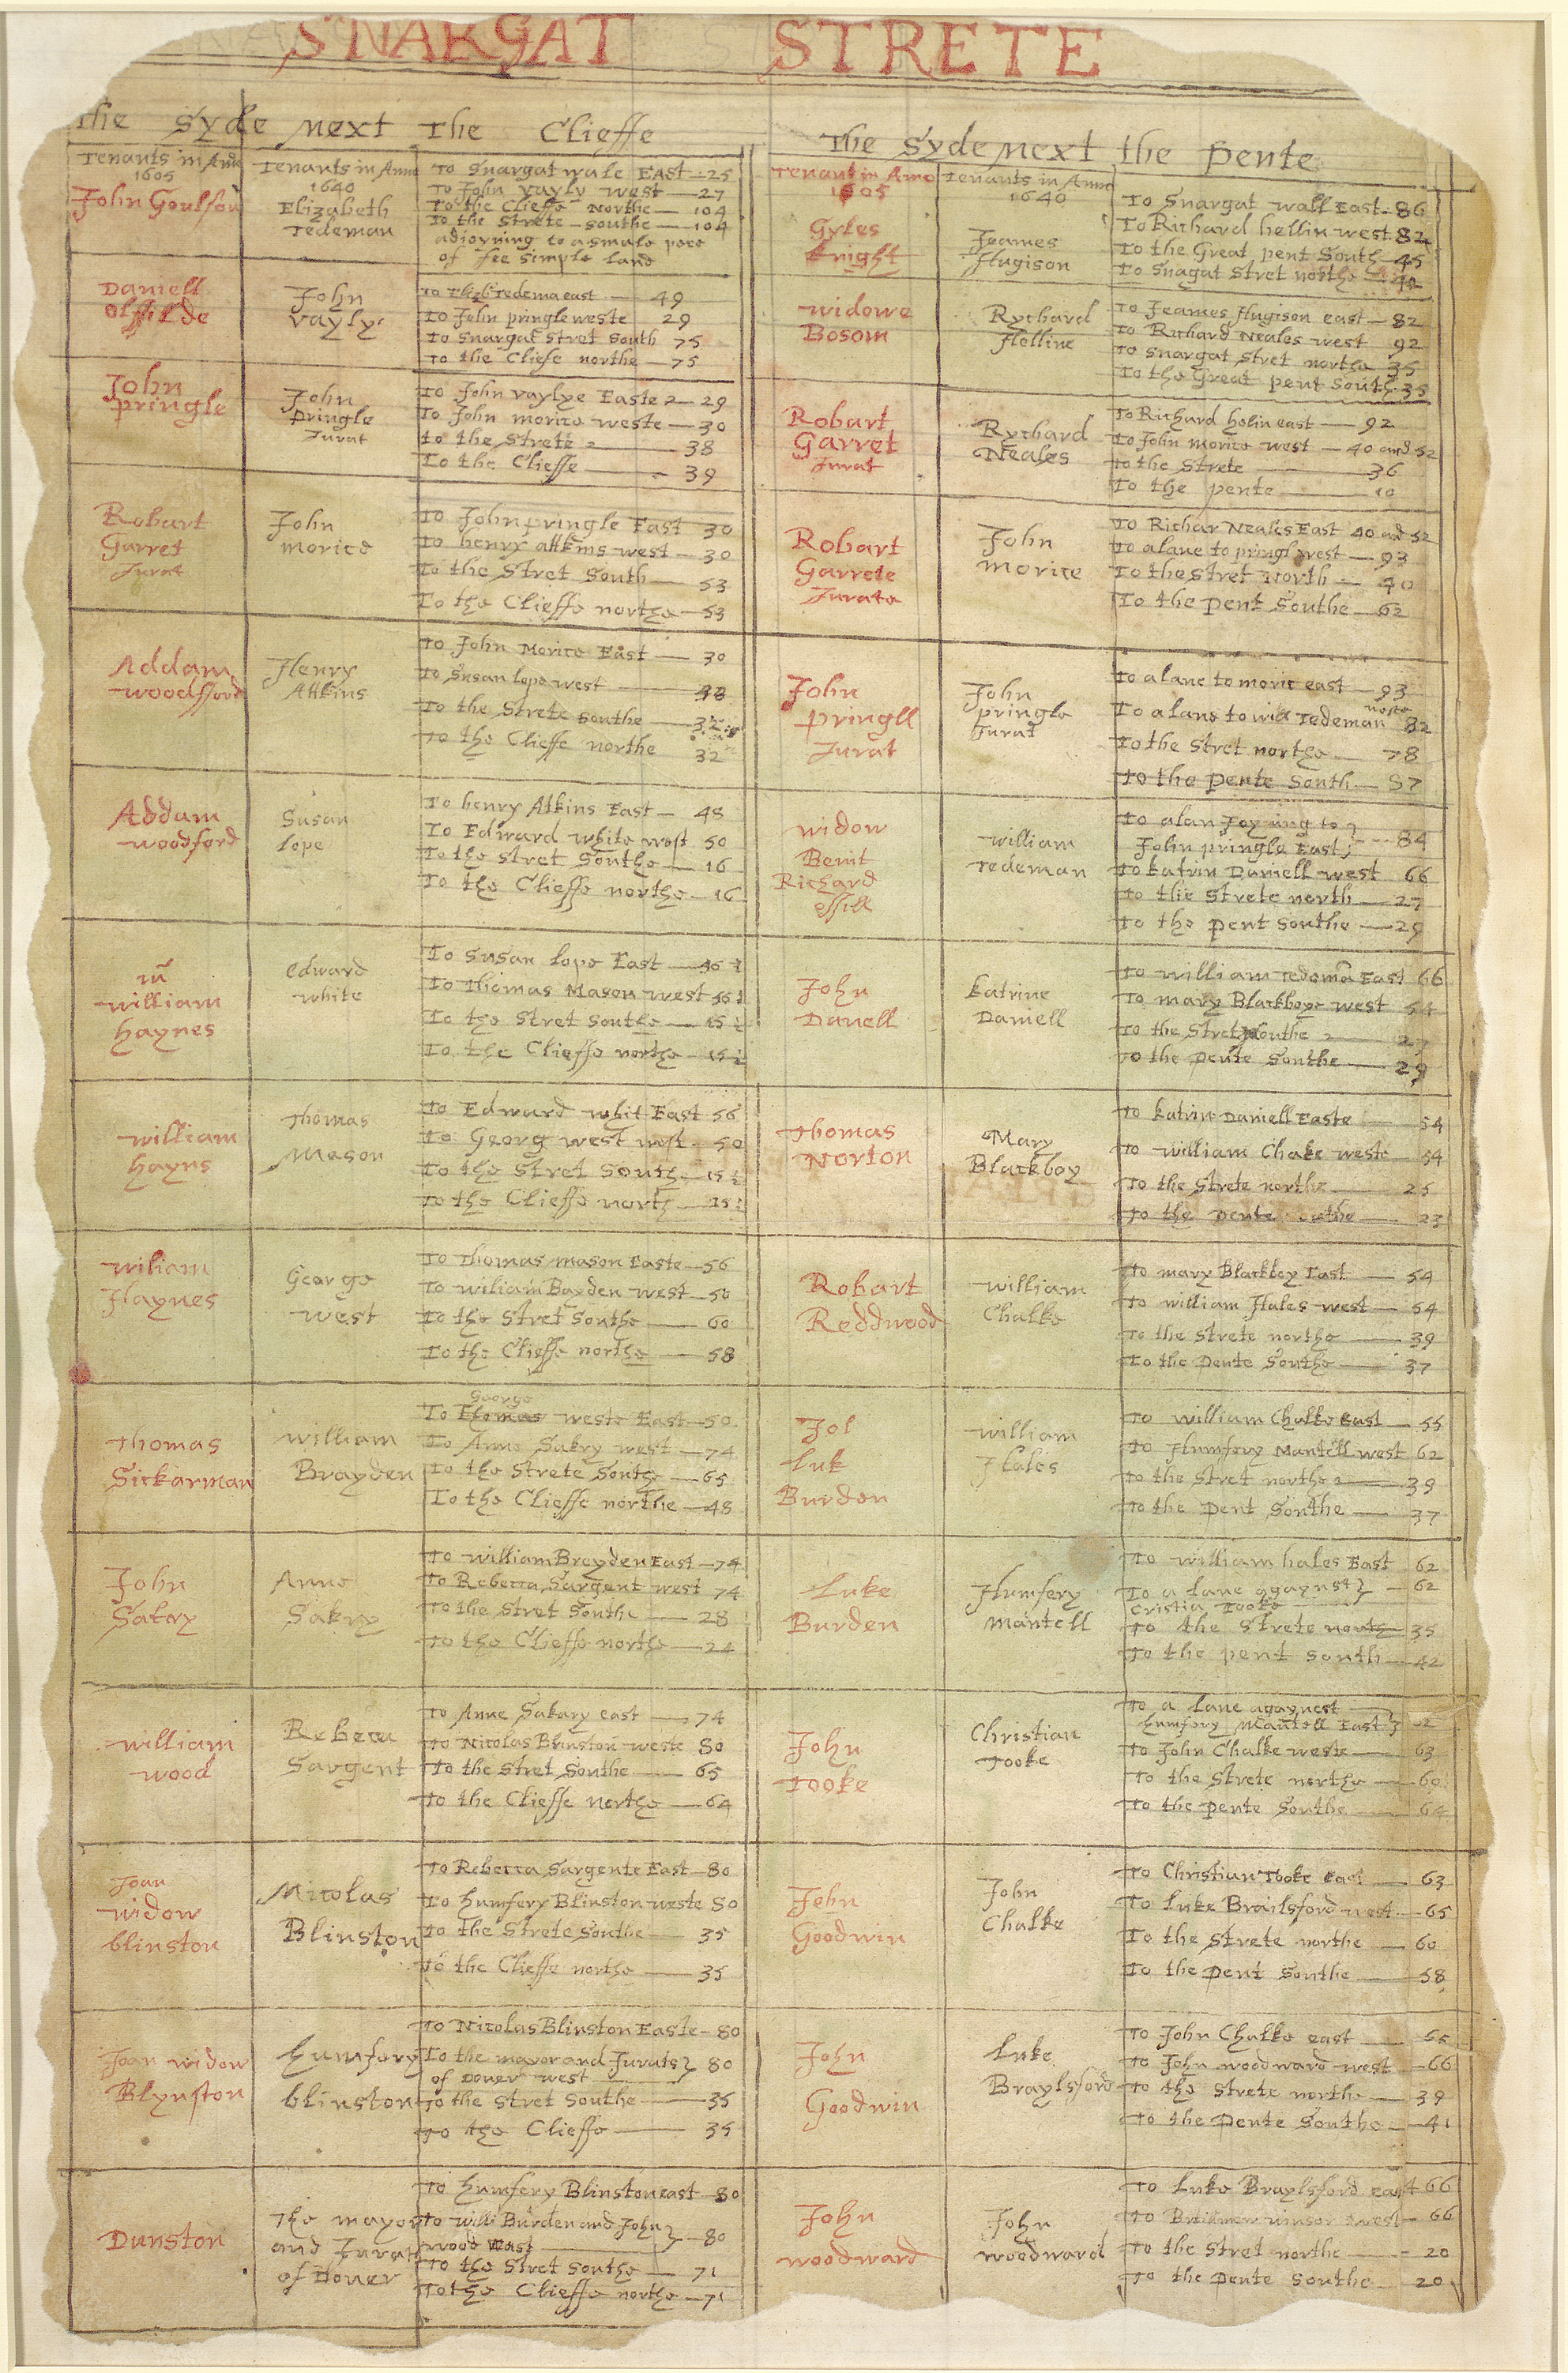 SNARGAT STRETE
The Syde next The Clieffe
Tenants in Anno
1605
Tenants in Anno
1640
John Goulfon
Elizabeth
Tedeman
To Snargat yate East - 25
To John vayly west - 27
To the Clieffe Northe - 104
To the Strete - Southe - 104
adjoyning to a smale pece
of fee simple land
Daniell
Olffilde
John
vayly
To Eliz Tedema east - 49
To John pringle weste 29
To Snargat Stret South 75
To the Cliefe northe - 75
John
pringle
John
pringle
Jurat
To John vaylye Easte - 29
To John morice weste - 30
to the Strete - 38
To the Clieffe - 39
Robart
Garret
Jurat
John
morice
To John pringle East 30
To henry atkins west - 30
To the Stret South - 53
To the Clieffe northe - 53
Addam
woodfford
Henry
Atkins
To John Morice East - 30
To Susan lope west - 48
To the Strete Southe - 32
To the Clieffe northe 32
Addam
woodford
Susan
lope
To henry Atkins East - 48
To Edward white west 50
To the stret Southe - 16
To the Clieffe northe - 16
william
haynes
Edward
white
To Susan lope East
To Thomas Mason west
To the Stret Southe - 15 ½
To the Clieffe northe - 15 ½
william
hayns
Thomas
Mason
To Edward whit East 56
To Georg west west - 50
To the Stret South - 15 ½
To the Clieffe north - 15 ½
wiliam
Haynes
George
west
To Thomas mason Easte - 56
To wiliam Bayden west - 50
To the Stret Southe - 60
To the Clieffe northe - 58
Thomas
Sickarman
william
Brayden
George
To Thomas weste East - 50
To Anne Sakry west - 74
To the Strete Southe - 65
To the Clieffe northe - 48
John
Sakry
Anne
Sakry
To william Breyden East - 74
To Rebecca Sargent west 74
To the Stret Southe - 28
To the Clieffe northe - 24
william
wood
Rebecca
Sargent
To Anne Sakary east - 74
To Nicolas Blinston weste 80
To the Stret Southe - 65
To the Clieffe northe - 64
Joan
widow
blinston
Nicolas
Blinston
To Rebecca Sargente East - 80
To humfery Blinston weste 80
To the Strete Southe - 35
To the Clieffe northe - 35
Joan widow
Blynston
humfery
blinston
To Nicolas Blinston Easte - 80
To the mayor and Jurats } 80
of Dover west
To the Stret Southe - 35
To the Clieffe - 35
Dunston
The mayor
and Jurats
of Dover
To humfery Blinston east - 80
To willi Burden and John } - 80
wood west
To the Stret Southe - 71
To the Clieffe northe - 71
The Syde next the pente
Tenant in Anno
1605
Tenants in Anno
1640
Gyles
knight
Jeames
Hugison
To Snargat wall East - 86
To Richard hellin west 82
To the Great pent South - 45
To Snagat Stret northe - 42
widowe
Bosom
Rychard
Helline
To Jeames Hugison east - 82
To Richard Neales west 92
To Snargat Stret northe 35
To the Great pent South 35
Robart
Garret
Jurat
Rychard
Neales
To Richard holin east - 92
To John morice west - 40 and 52
To the Strete - 36
To the pente - 10
Robart
Garrete
Jurate
John
morice
To Richar Neales East 40 ad 52
To alane to pringl west - 93
To the stret North - 40
To the pent Southe - 62
John
pringll
Jurat
John
pringle
Jurat
To alane to moric east - 93
To alane to will Tedeman weste 82
To the Stret northe 78
To the pente South - 87
widow
Benit
Richard
essill
william
Tedeman
To alan Joyning to } - 84
John pringle East
To katrin Daniell west 66
To the Strete north - 27
To the pent Southe - 29
John
Danell
katrine
Daniell
To william Tedema East 66
To mary Blackboye west 54
To the Stret Southe 27
To the pente Southe - 29
Thomas
Norton
Mary
Blackboy
To katrin Daniell Easte 54
To william Chake weste - 54
To the Strete northe - 25
To the pente Southe - 23
Robart
Reddwood
william
Chalke
To mary Blackboy East - 54
To william Hales west - 54
To the Strete northe - 39
To the pente Southe - 37
Jol
luk
Burden
william
Hales
To william Chalke East - 55
To Humfery Mantell west 62
To the Stret northe - 39
To the pent Southe - 37
Luke
Burden
Humfery
mantell
To william hales East 62
To a lane agaynst } - 62
Cristia Tooke
To the Strete north 35
To the pent South - 42
John
Tooke
Christian
Tooke
To a lane agaynest
humfery Mantell East }
To John Chalke weste - 63
To the Strete northe - 60
To the pente Southe 64
John
Goodwin
John
Chalke
To Christian Tooke east - 63
To luke Brailsford west - 65
To the Strete northe - 60
To the pent Southe - 58
John
Goodwin
luke
Braylsford
To John Chalke east - 65
To John woodward west - 66
To the Strete northe - 39
To the pente Southe - 41
John
woodward
John
woodward
To luke Braylsford east 66
To winsor west - 66
To the Stret northe - 20
To the pente Southe - 20